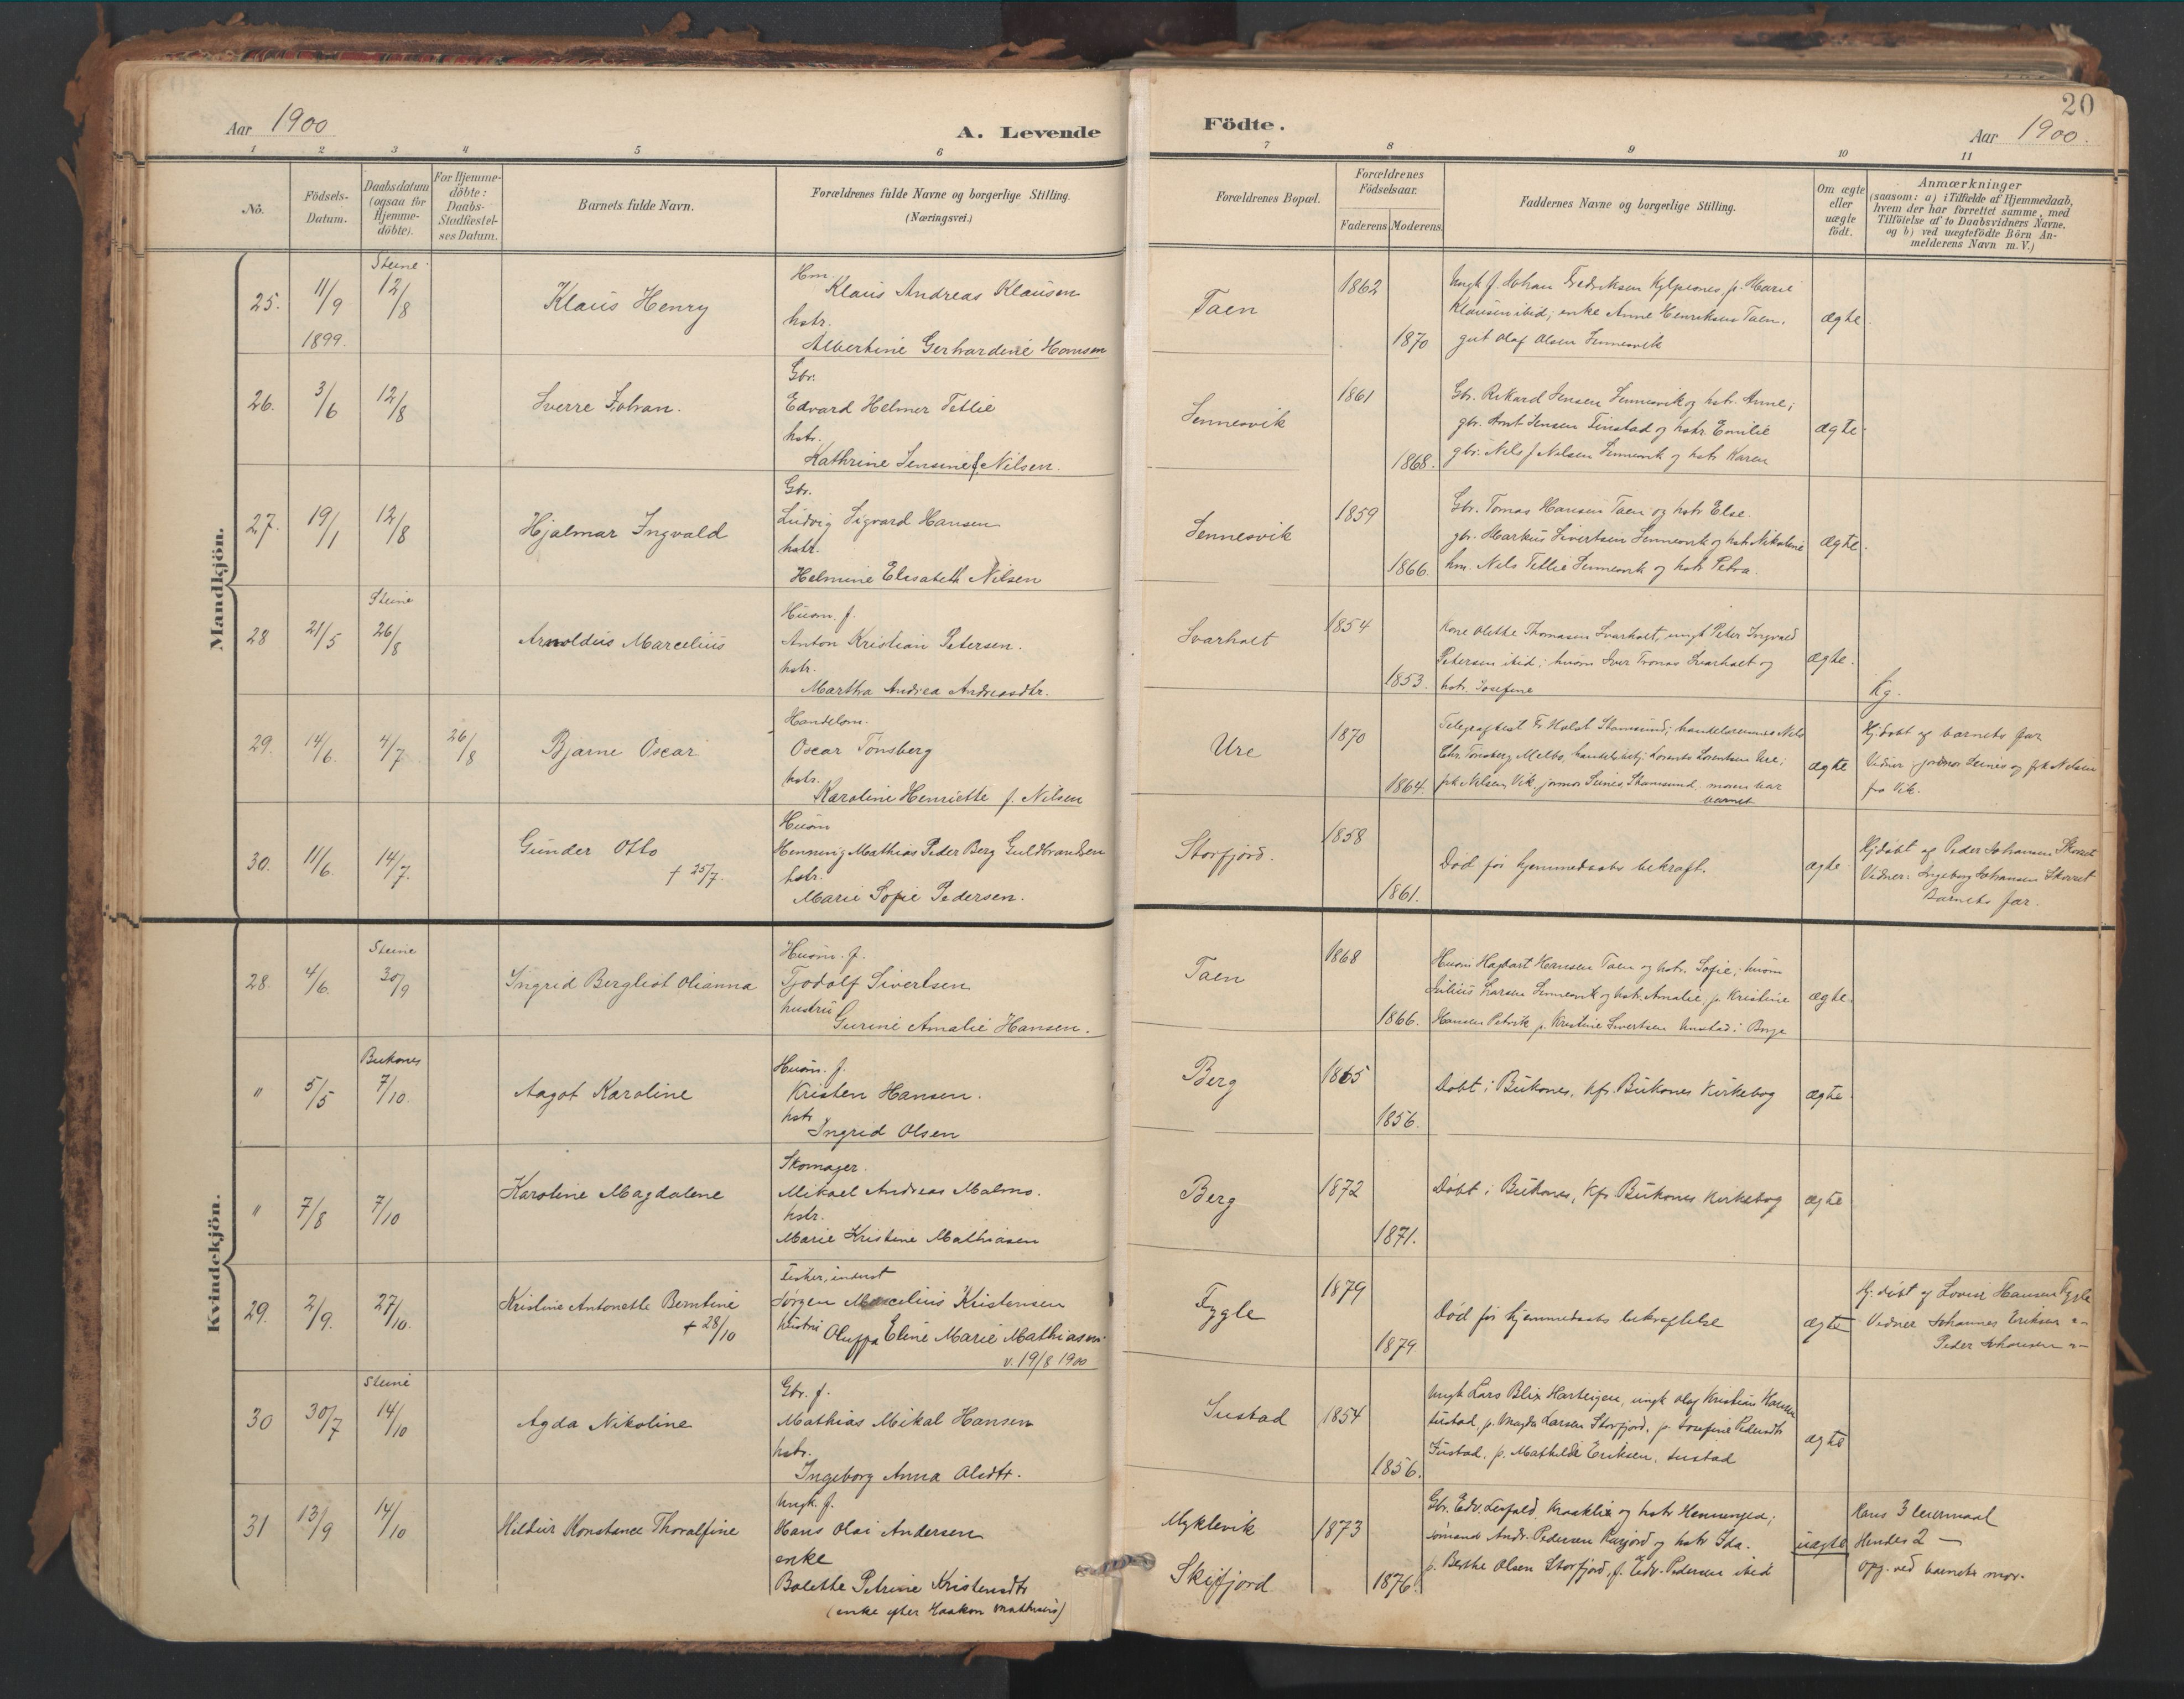 20
Aar 1900
A. Levende
Födte.
Aar 1900.
1 2 3 4 5 6 7 8 9 10 11
No.
Födsels-
Datum.
Daabsdatum
(ogsaa for
Hjemme-
döbte).
For Hjemme-
döbte:
Daabs-
Stadfæstel-
ses Datum.
Barnets fulde Navn.
Forældrenes fulde Navne og borgerlige Stilling.
(Næringsvei.)
Forældrenes Bopæl.
Forældrenes
Födselsaar.
Faderens Moderens
Faddernes Navne og borgerlige Stilling.
Om ægte
eller
uægte
födt.
Anmærkninger
(saasom: a) i Tilfælde af Hjemmedaab,
hvem der har forrettet samme, med
Tilföielse af to Daabsvidners Navne.
og b) ved uægtefödte Börn An-
melderens Navn m. V.)
Mandkjön.
25. 11/9 1899. Steine 12/8 Klaus Henry
Hm. Klaus Andreas Klausen
hstr.
Albertine Gerhardine Hansen
Taen 1862 1870
Ungk f. Johan Fredriksen p. Marie
Klausen ibid; enke Anne Henriksen Taen.
gut Olaf Olsen Sennesvik
ægte.
26. 3/6 12/8 Sverre Johan.
Gbr.
Edvard Helmer Tetlie
hstr.
Kathrine Jensine f. Nilsen.
Sennesvik 1861 1868.
Gbr. Rikard Jensen Sennesvik og hstr. Anne;
gbr. Arnt Jensen Finstad og hstr. Emilie
gbr. Nils J Nilsen Sennesvik og hstr Karen
ægte
27. 19/1 12/8 Hjalmar Ingvald
Gbr.
Ludvig Sigvard Hansen
hstr.
Helmine Elisabeth Nilsen
Sennesvik 1859 1866.
Gbr. Tomas Hansen Taen og hstr Else.
gbr. Markus Sivertsen Sennesvik og hstr Nikoline
hm. Nils Tetlie Sennesvik og hstr Petra.
ægte.
28 21/5 Steine 26/8 Arnoldus Marcelius
Husm. f.
Anton Kristian Petersen.
hstr.
Martha Andrea Andreasdtr.
Svarholt 1854 1853.
Kone Olethe Thomasen Svarholt, ungk Peter Ingvald
Petersen ibid; husm Iver Tronas Svarholt og
hstr. Josefine
ægte.
Kg.
29. 14/6. 4/7 26/8 Bjarne Oscar
Handelsm.
Oscar Tønsberg
hstr.
Karoline Henriette f. Nilsen
Ure 1870 1864.
Telegrafbest Fr. Holst Stamsund; handelsmand Nils
Chr. Tønsberg Melbo, handelsbetj. Lorents Lorentsen Ure;
frk Nilsen, Vik. jormor Seines Stamsund. moren bar
barnet
ægte
Hj.døbt af barnets far
Vidner: jordmor Seines og frk Nilsen
fra Vik.
30. 11/6. 14/7. Gunder Otto
† 25/7.
Husm
Henning Mathias Peder Berg Guldbrandsen
hstr.
Marie Sofie Pedersen.
Storfjord. 1858 1861.
Død før hjemmedaabs bekræft.
ægte
Hjdøbt af Peder Johansen
Vidner: Ingeborg Johansen
Barnets far.
Kvindekjön.
28. 4/6. Steine 30/9 Ingrid Bergliot Olianna
Husm. f.
Tjodolf Sivertsen
hustru
Gurine Amalie Hansen.
Taen 1868 1866.
Husm Hagbart Hansen Taen og hstr. Sofie; husm
Julius Larsen Sennesvik og hstr. Amalie, p. Kristine
Hansen Petvik p. Kristine Sivertsen Unstad i Borge
ægte.
" 5/5 Buksnes 7/10. Aagot Karoline
Husm. f.
Kristen Hansen.
hstr.
Ingrid Olsen
Berg 1865 1856.
Døbt i Buksnes, kfr. Buksnes Kirkebog
ægte
" 7/8 7/10 Karoline Magdalene
Skomager.
Mikael Andreas Malmo.
hstr.
Marie Kristine Mathiasen
Berg 1872 1871.
Døbt i Buksnes, kfr Buksnes Kirkebog
ægte
29. 2/9. 27/10. Kristine Antonette Berntine
† 28/10
Fisker, inderst
Jørgen Marcelius Kristensen
hustru Oluffa Eline Marie Mathiasen
v. 19/8 1900
Fygle 1879 1879
Død før hjemmedaabs bekræftelse
ægte
Hj. døbt af Lovise Hansen Fygle
Vidner Johannes Eriksen "–
Peder Johansen "–
30 30/7 Steine 14/10 Agda Nikoline
Gbr. f.
Mathias Mikal Hansen
hstr.
Ingeborg Anna Olsdtr.
Sustad 1854 1856.
Ungk Lars Blix Hartvigsen, ungk Olaf Kristian Hansen
Sustad, p. Magda Larsen Storfjord, p. Josefine Pedersdtr
Sustad, p. Mathilde Eriksen, Sustad
ægte
31 13/9 14/10 Hildur Konstance Thoralfine
Ungk. f.
Hans Olai Andersen
enke
Bolette Petrine Kristensdtr
(enke efter Haakon Mathisens)
Myklevik
Skifjord
1873 1876.
Gbr. Edv. Leufald, Kraaklie og hstr Henningea;
sømand Andr. Pedersen og hstr Ida.
p. Berthe Olsen Storfjord, f. Edv. Pedersen ibid
uægte
Hans 3 leiermaal
Hendes 2 –
Opg. ved barnets mor.